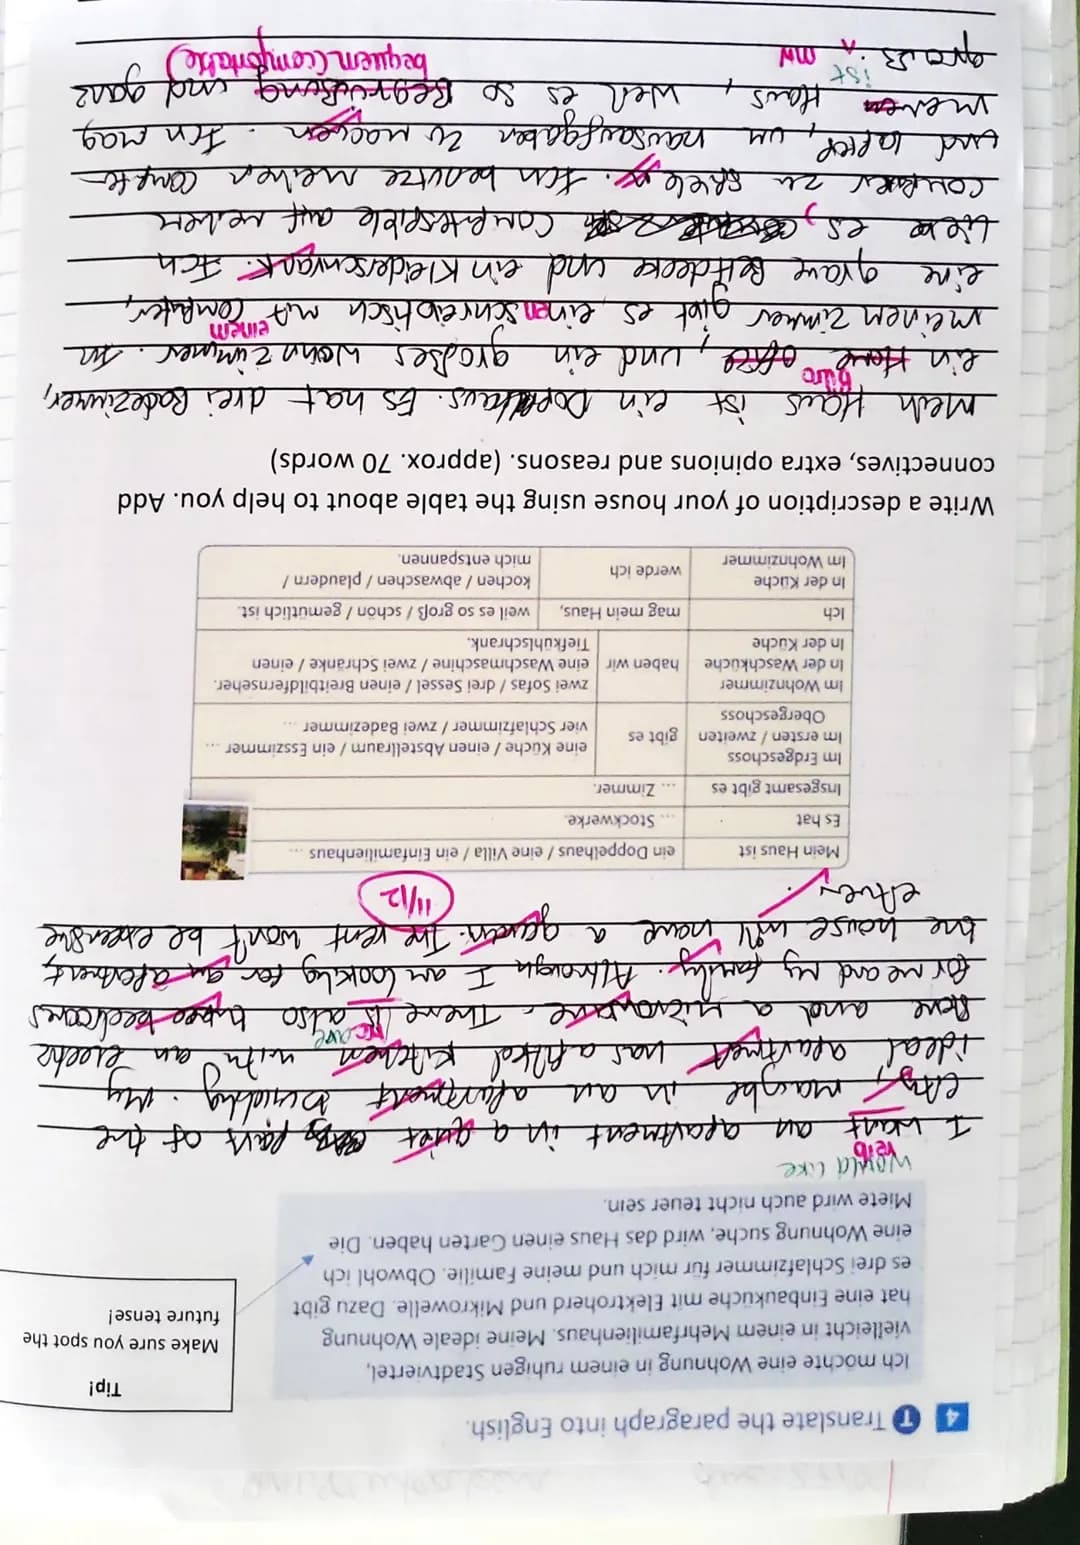 4 T Translate the paragraph into English.
Tip!
Make sure you spot the
future tense!
Ich möchte eine Wohnung in einem ruhigen Stadtviertel,
vielleicht in einem Mehrfamilienhaus. Meine ideale Wohnung
hat eine Einbauküche mit Elektroherd und Mikrowelle. Dazu gibt
es drei Schlafzimmer für mich und meine Familie. Obwohl ich
eine Wohnung suche, wird das Haus einen Garten haben. Die
Miete wird auch nicht teuer sein.
would like
verb
I want an apartment in a quiet part of the
city, maybe in an apartment building. My
ideal apartment has a fitted kitchen with an electric
are
stove and a microwave. There is also three bedrooms
for me and my family. Although I am looking for an apartment,
the house will have a garden. The rent won't be expensive
either.
11/12
Mein Haus ist ein Doppelhaus / eine Villa / ein Einfamilienhaus ...
Es hat ... Stockwerke.
Insgesamt gibt es ... Zimmer.
Im Erdgeschoss
Im ersten / zweiten Obergeschoss gibt es eine Küche / einen Abstellraum / ein Esszimmer ...
vier Schlafzimmer / zwei Badezimmer ...
Im Wohnzimmer zwei Sofas / drei Sessel / einen Breitbildfernseher.
In der Waschküche haben wir eine Waschmaschine / zwei Schränke / einen
In der Küche Tiefkühlschrank.
Ich mag mein Haus, weil es so groß / schön / gemütlich ist.
In der Küche werde ich kochen / abwaschen / plaudern /
Im Wohnzimmer mich entspannen.
Write a description of your house using the table about to help you. Add
connectives, extra opinions and reasons. (approx. 70 words)
Mein Haus ist ein Dopelhaus. Es hat drei Badezimmer,
Büro
ein Home office, und ein großes Wohnzimmer. In
einem
meinem Zimmer gibt es einen schreibtisch mit Computer,
eine graue Bettdecke und ein Kleiderschrank. Ich
liebe es, Computerspiele auf meinem
computer zu spielen. Ich benutze meinen computer
und laptop, um hausaufgaben zu machen. Ich mag
mein Haus, weil es so und ganz
ist bequem (comfortable)
gross. MW